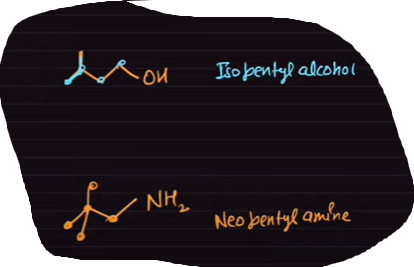 OH Isopentyl alcohol
NH2 Neopentyl amine